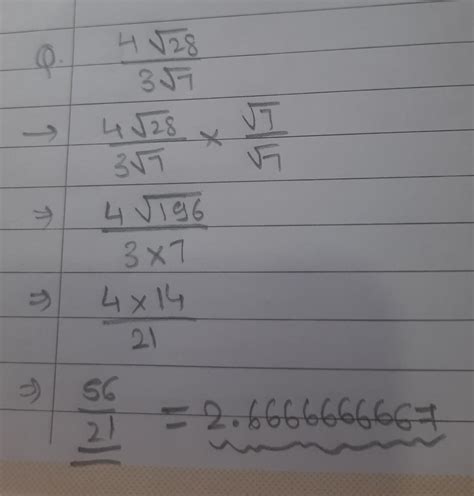 Q. 4√28 / 3√7
→ 4√28 / 3√7 × √7 / √7
⇒ 4√196 / 3×7
⇒ 4×14 / 21
⇒ 56 / 21 = 2.6666666667